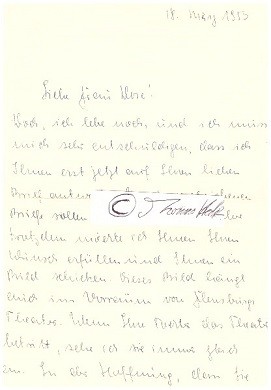 18. März 1953
Liebe Frau
doch, ich lebe noch, und ich muss
mich sehr entschuldigen, dass ich
Ihnen erst jetzt auf Ihren lieben
Brief
Briefe sollen
©
trotzdem möchte ich Ihnen Ihren
Wunsch erfüllen und Ihnen ein
Bild schicken. Dieses Bild hängt
auch im Vorraum von Flensburgs
Theater. Wenn Ihre das Theater
betritt, sehe ich sie immer gleich
an. In der Hoffnung, dass Sie